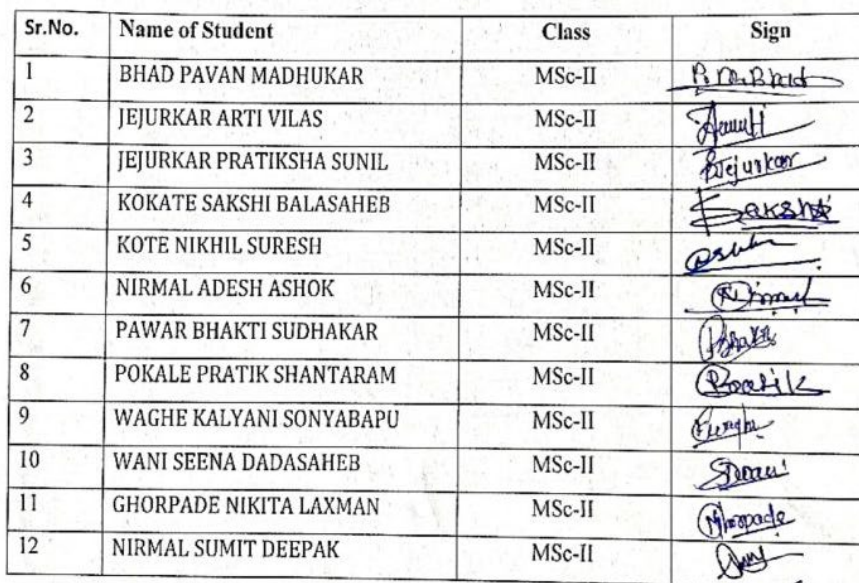 Sr.No. Name of Student Class Sign
1 BHAD PAVAN MADHUKAR MSc-II P.M.Bhad
2 JEJURKAR ARTI VILAS MSc-II
3 JEJURKAR PRATIKSHA SUNIL MSc-II PJejurkar
4 KOKATE SAKSHI BALASAHEB MSc-II Sakshi
5 KOTE NIKHIL SURESH MSc-II
6 NIRMAL ADESH ASHOK MSc-II
7 PAWAR BHAKTI SUDHAKAR MSc-II Bhakti
8 POKALE PRATIK SHANTARAM MSc-II
9 WAGHE KALYANI SONYABAPU MSc-II
10 WANI SEENA DADASAHEB MSc-II
11 GHORPADE NIKITA LAXMAN MSc-II
12 NIRMAL SUMIT DEEPAK MSc-II